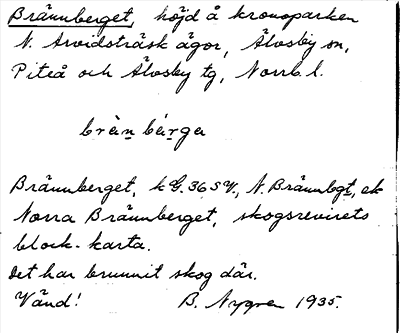 Brännberget, höjd å kronoparken
N. Arvidsträsk ägor, Älvsby sn,
Piteå och Älvsby tg, Norrb. l.
brän bärga
Brännberget, k G. 36 SV., N. Brännbgt, ek
Norra Brännberget, skogsrevirets
block-karta.
Det har brunnit skog där.
Vänd! B. Nygren 1935.